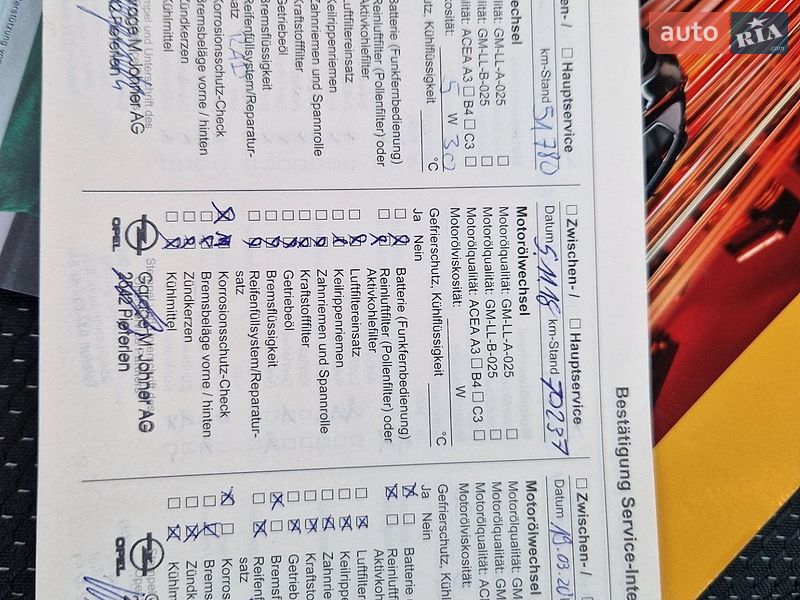 auto RIA
.com
Bestätigung Service-Inte
☐ Hauptservice
km-Stand 51780
wechsel
GM-LL-A-025 ☐
GM-LL-B-025 ☐
ACEA A3 ☐ B4 ☐ C3 ☐
5 W 30
Kühlflüssigkeit °C
Batterie (Funkfernbedienung)
Reinluftfilter (Pollenfilter) oder
Aktivkohlefilter
Luftfiltereinsatz
Keilrippenriemen
Zahnriemen und Spannrolle
Kraftstofffilter
Getriebeöl
Bremsflüssigkeit
Reifenfüllsystem/Reparatur-
satz
Korrosionsschutz-Check
Bremsbeläge vorne / hinten
Zündkerzen
Kühlmittel
M. Johner AG
☐ Zwischen- / ☐ Hauptservice
Datum 5.11.18 km-Stand 70237
Motorölwechsel
Motorölqualität: GM-LL-A-025 ☐
Motorölqualität: GM-LL-B-025 ☐
Motorölqualität: ACEA A3 ☐ B4 ☐ C3 ☐
Motorölviskosität: W
Gefrierschutz, Kühlflüssigkeit °C
Ja Nein
Batterie (Funkfernbedienung)
Reinluftfilter (Pollenfilter) oder
Aktivkohlefilter
Luftfiltereinsatz
Keilrippenriemen
Zahnriemen und Spannrolle
Kraftstofffilter
Getriebeöl
Bremsflüssigkeit
Reifenfüllsystem/Reparatur-
satz
Korrosionsschutz-Check
Bremsbeläge vorne / hinten
Zündkerzen
Kühlmittel
OPEL
Garage M. Johner AG
Pieterlen
☐ Zwischen- /
Datum 19.03.20
Motorölwechsel
Motorölqualität: GM
Motorölqualität: GM
Motorölqualität: AC
Motorölviskosität:
Gefrierschutz, Kühl
Ja Nein
Batterie
Reinluft
Aktivkohle
Luftfilter
Keilrippe
Zahnrie
Kraftsto
Getrieb
Bremsf
Reifenf
satz
Korros
Brems
Zündk
Kühlm
OPEL